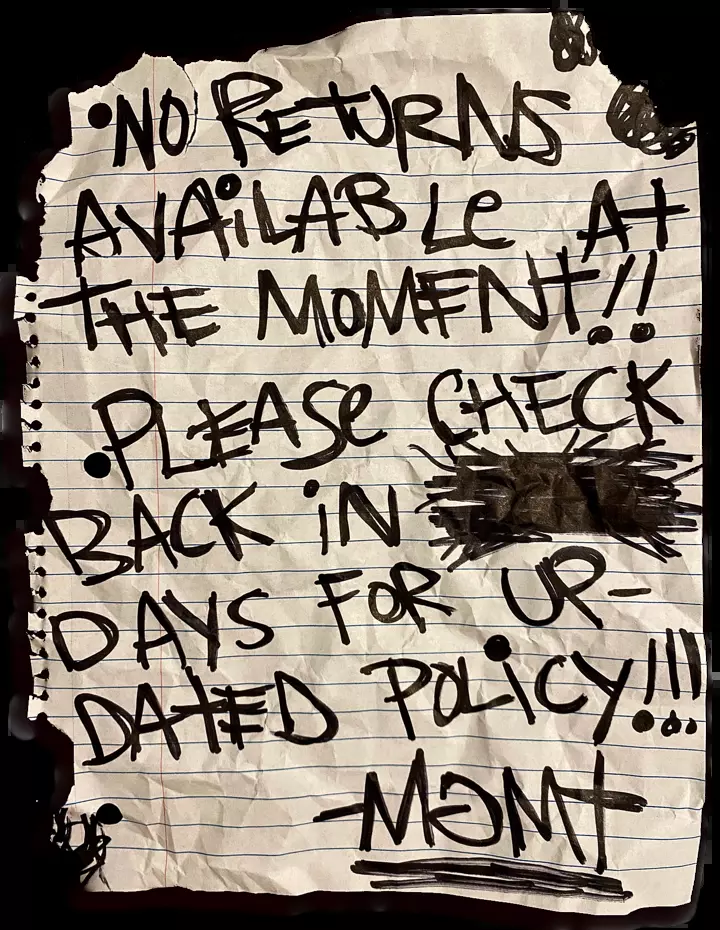 •NO RETURNS
AVAiLABLe AT
THE MoMENT!!
•PLEASe CHECK
BACK iN
DAYS FOR UP-
DATED POLiCY!!!
-MGMT